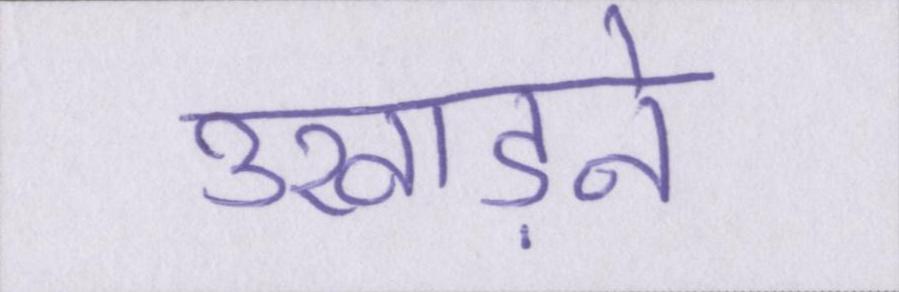 उखाड़ने